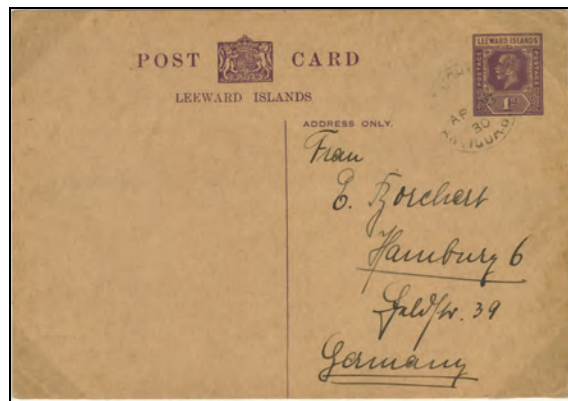 POST CARD
LEEWARD ISLANDS
LEEWARD ISLANDS
POSTAGE
POSTAGE
1D
AP
30
ANTIGUA
ADDRESS ONLY.
Frau
E. Borchert
Hamburg 6
Feldstr. 39
Germany